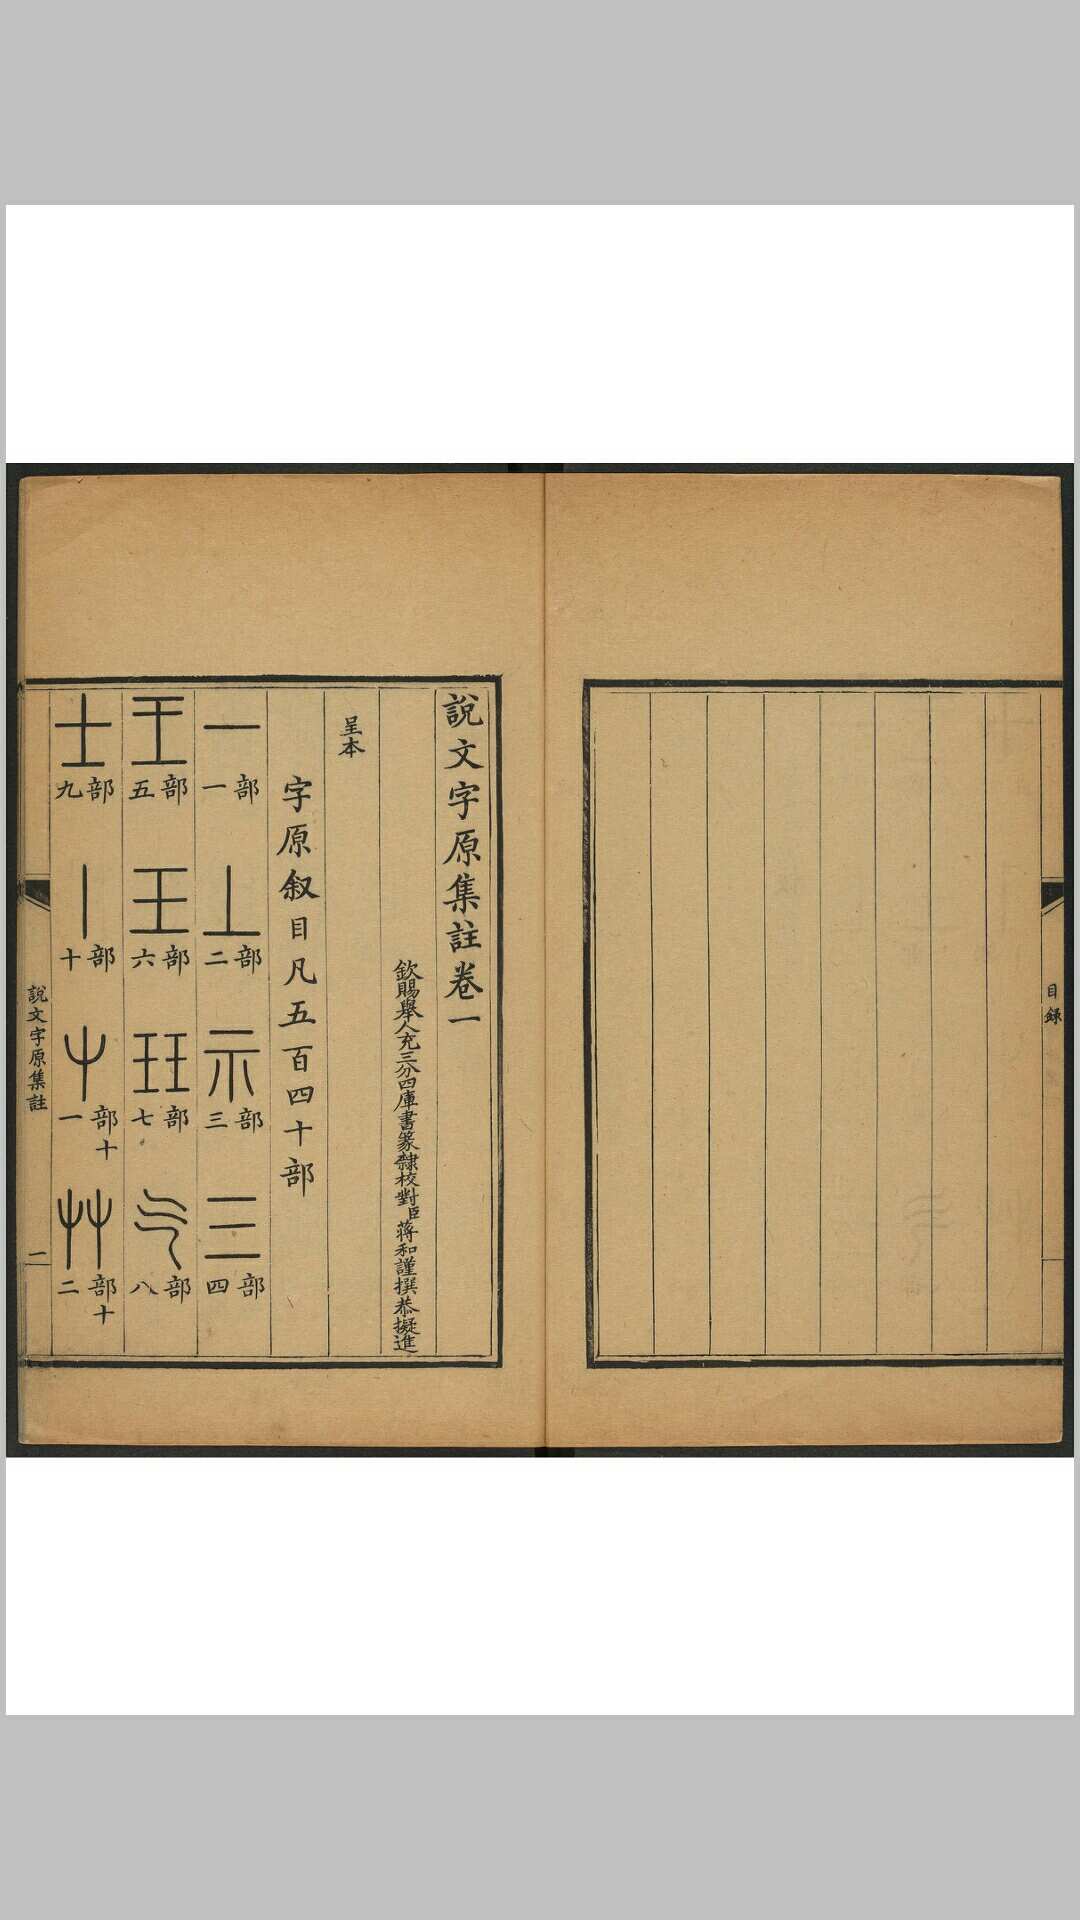 目録
說文字原集註卷一
欽賜舉人充三分四庫書篆隸校對臣蔣和謹撰恭擬進
呈本
字原叙目凡五百四十部
一 部一 丄 部二 示 部三 三 部四
王 部五 玉 部六 玨 部七 气 部八
士 部九 丨 部十 屮 部十一 艸 部十二
說文字原集註 一